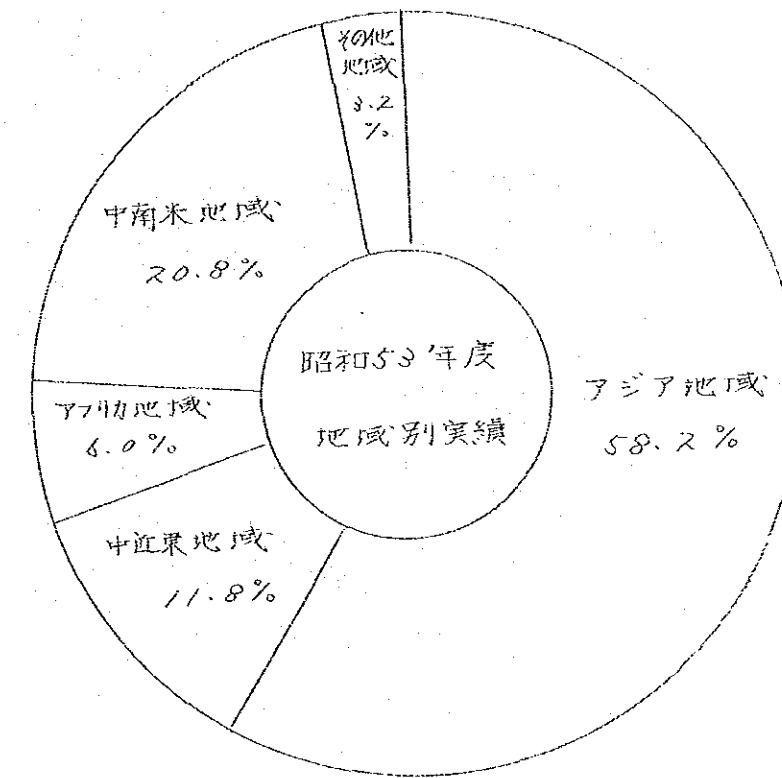 その他
地域
3.2
%
中南米地域
20.8%
アフリカ地域
6.0%
中近東地域
11.8%
昭和53年度
地域別実績
アジア地域
58.2%